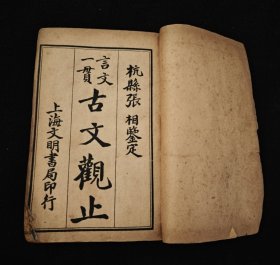 杭縣張相鑒定
言文一貫
古文觀止
上海文明書局印行